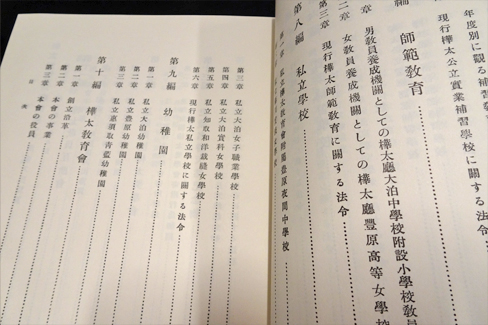 年度別に觀る補習敎育
現行樺太公立實業補習學校に關する法令
編　師範敎育
男敎員養成機關としての樺太廳大泊中學校附設小學校敎員
二章　女敎員養成機關としての樺太廳豐原高等女學校
第三章　現行樺太師範敎育に關する法令
第八編　私立學校
私立樺太敎育會附屬豐原夜間中學校
第三章　私立大泊女子職業學校
第四章　私立大泊實科女學校
第五章　私立知取和洋裁縫女學校
第六章　現行樺太私立學校に關する法令
第九編　幼稚園
第一章　私立大泊幼稚園
第二章　私立豐原幼稚園
第三章　私立惠須取靑藍幼稚園
第十編　樺太敎育會
第一章　創立沿革
第二章　本會の事業
第三章　本會の役員
目次